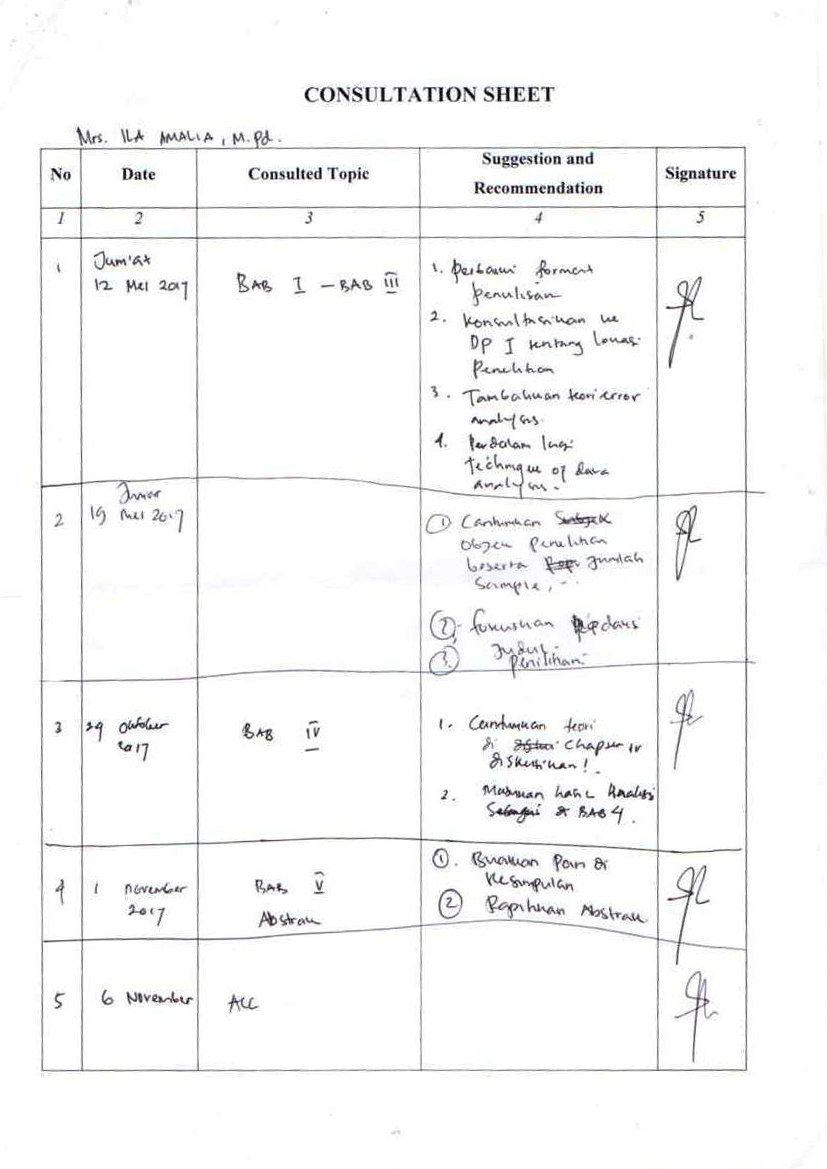 CONSULTATION SHEET
Mrs. ILA AMALIA, M.Pd.
No Date Consulted Topic Suggestion and Recommendation Signature
1 2 3 4 5
1 Jum'at
12 Mei 2017 BAB I - BAB III
1. Perbaiki format
penulisan
2. Konsultasikan ke
DP I tentang lokasi
Penelitian
3. Tambahkan teori error
analysis.
4. Perdalam lagi
technique of data
analysis.
2 Jumat
19 Mei 2017
① Cantumkan
objek penelitian
beserta jumlah
Sample, -
② fokuskan dari
③ Judul
penilihan.
3 29 Oktober
2017 BAB IV
1. Cantumkan teori
di chapter IV
diskusikan!
2. Masukan hasil Analisi
di BAB 4.
4 1 november
2017 BAB V
Abstrak
①. Buatkan Poin di
Kesimpulan
② Rapihkan Abstrak
5 6 November ACC